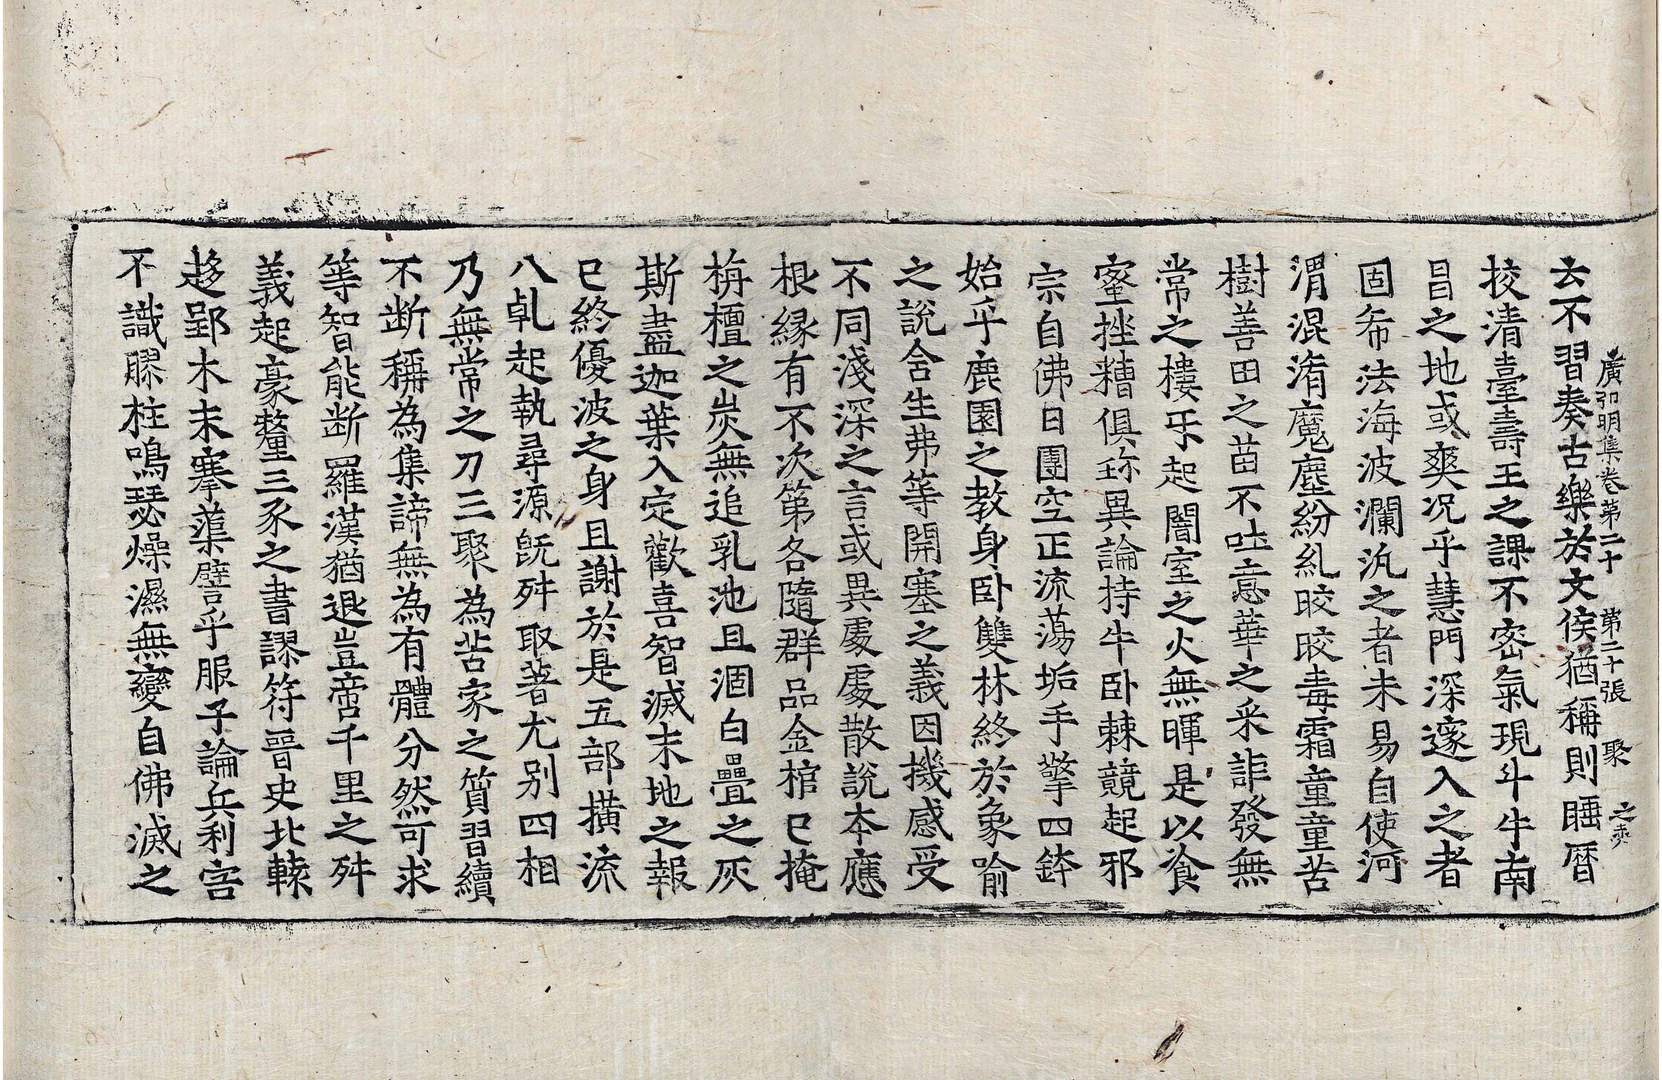 廣弘明集卷第二十 第二十張 聚
去不習奏古樂於文侯猶稱則睡曆
挍清臺壽王之課不密氣現斗牛南
昌之地或爽况乎慧門深邃入之者
固希法海波瀾汎之者未易自使河
渭混淆魔塵紛糺晈晈毒霜童童苦
樹善田之苗不吐意華之采詎發無
常之樓乐起闇室之火無暉是以飡
蜜挫糟俱珎異論持牛卧棘競起邪
宗自佛日團空正流蕩垢手擎四鉢
始乎鹿園之教身卧雙林終於象喻
之說舍生弗等開塞之義因機感受
不同淺深之言或異處處散說本應
根緣有不次第各隨群品金棺已掩
栴檀之炭無追乳池且涸白疊之灰
斯盡迦葉入定歡喜智滅末地之報
已終優波之身且謝於是五部橫流
八乹起執尋源旣舛取著尤别四相
乃無常之刀三聚為苦家之質習續
不断稱為集諦無為有體分然可求
等智能断羅漢猶退豈啻千里之舛
義起豪釐三豕之書謬符晉史北轅
趍郢木末搴蕖譬乎服子論兵利害
不識膠柱鳴瑟燥濕無變自佛滅之